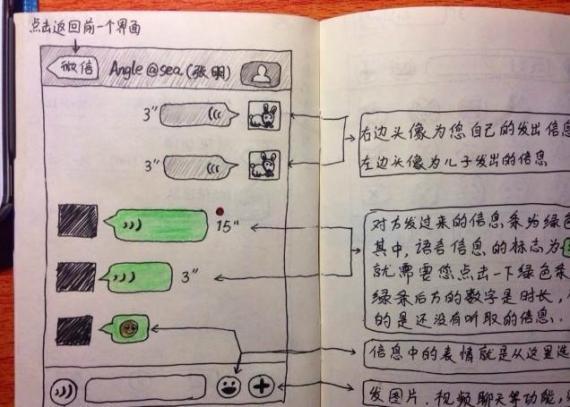 点击返回前一个界面
微信
Angle@sea.(张明)
3"
3"
15"
3"
右边头像为您自己的发出信息
左边头像为儿子发出的信息
对方发过来的信息条为绿色
其中,语音信息的标志为
就需要您点击一下绿色条
绿条后方的数字是时长,
的是还没有听取的信息.
信息中的表情就是从这里选
发图片.视频聊天等功能,